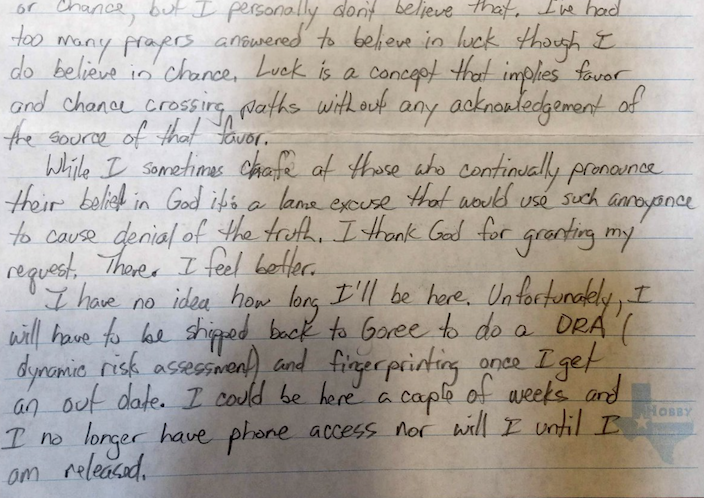 or chance, but I personally don't believe that. I've had
too many prayers answered to believe in luck though I
do believe in chance. Luck is a concept that implies favor
and chance crossing paths without any acknowledgement of
the source of that favor.
While I sometimes chafe at those who continually pronounce
their belief in God it's a lame excuse that would use such annoyance
to cause denial of the truth. I thank God for granting my
request. There. I feel better.
I have no idea how long I'll be here. Unfortunately, I
will have to be shipped back to Goree to do a DRA (
dynamic risk assessment) and fingerprinting once I get
an out date. I could be here a cople of weeks and
I no longer have phone access nor will I until I
am released.
HOBBY